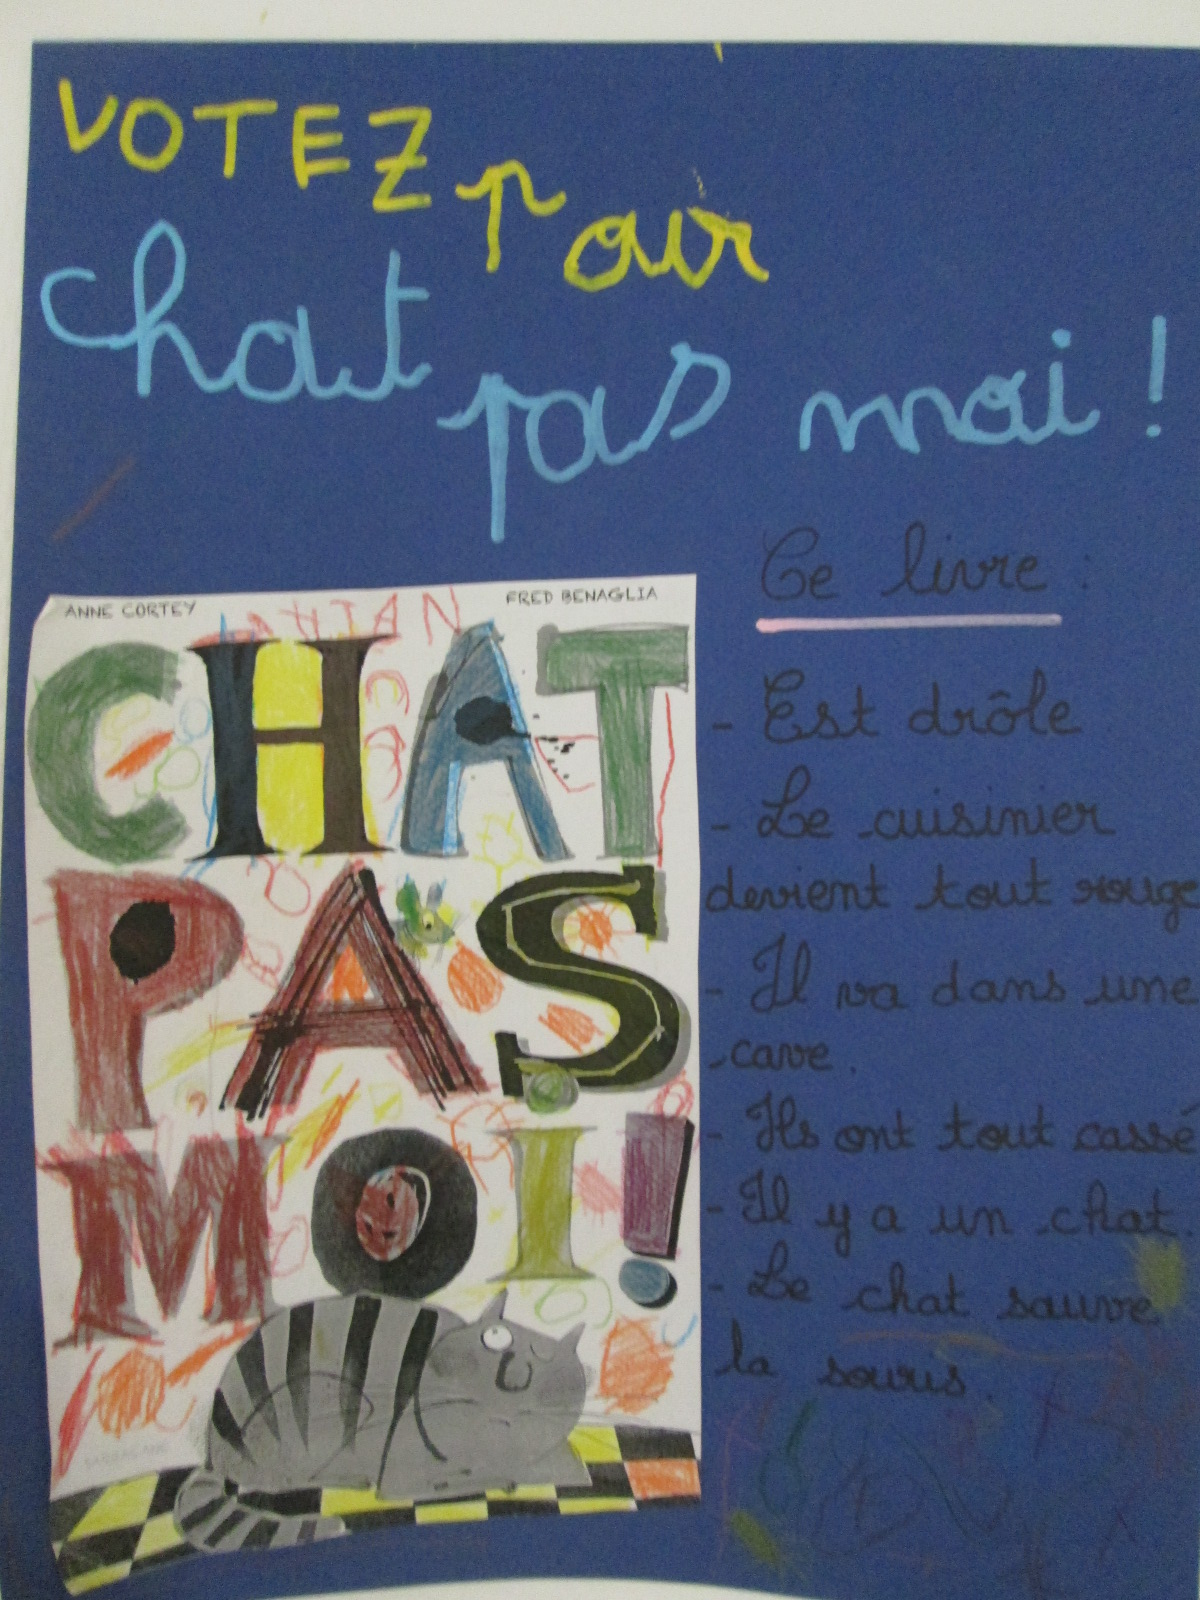 VOTEZ pour
Chat pas moi !
Ce livre :
- Est drôle
- Le cuisinier
devient tout rouge
- Il va dans une
cave.
- Ils ont tout cassé
- Il y a un chat.
- Le chat sauve
la souris.
ANNE CORTEY FRED BENAGLIA
NATHAN
CHAT
PAS
MOI!